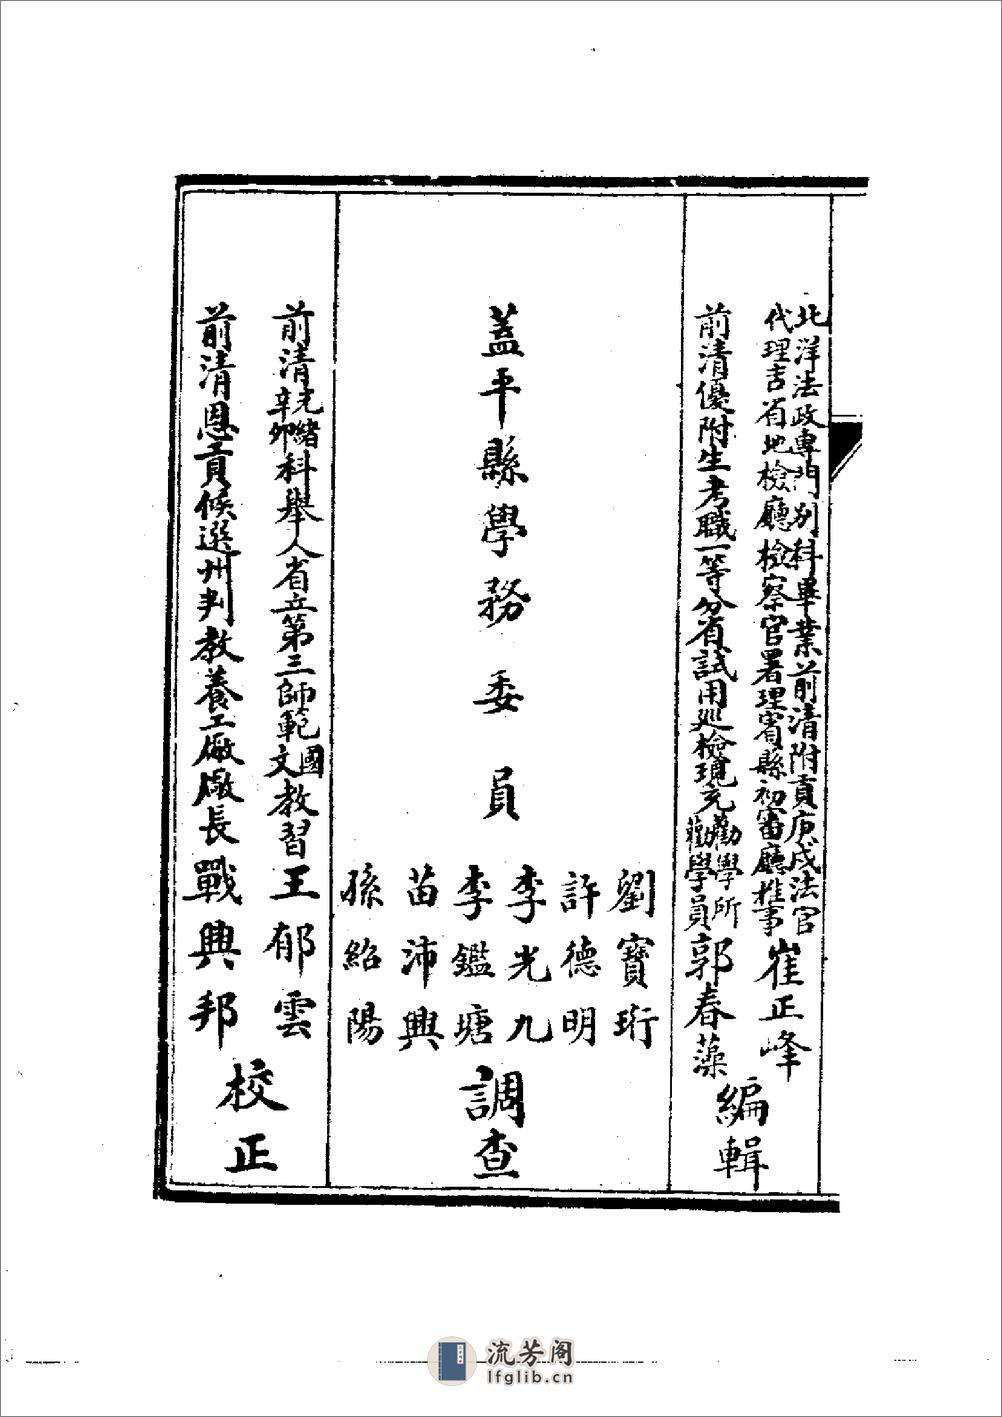 北洋法政專門別科畢業前清附貢庚戌法官
代理吉省地檢廳檢察官署理賓縣初審廳推事
崔正峰
前清優附生考職一等分省試用巡檢現充勸學所勸學員郭春藻
編輯
蓋平縣學務委員
劉寶珩
許德明
李光九
李鑑塘
苗沛興
孫紹陽
調查
前清光緒辛卯科舉人省立第三師範國文教習王郁雲
前清恩貢候選州判教養工廠廠長戰興邦
校正
流芳阁
lfglib.cn